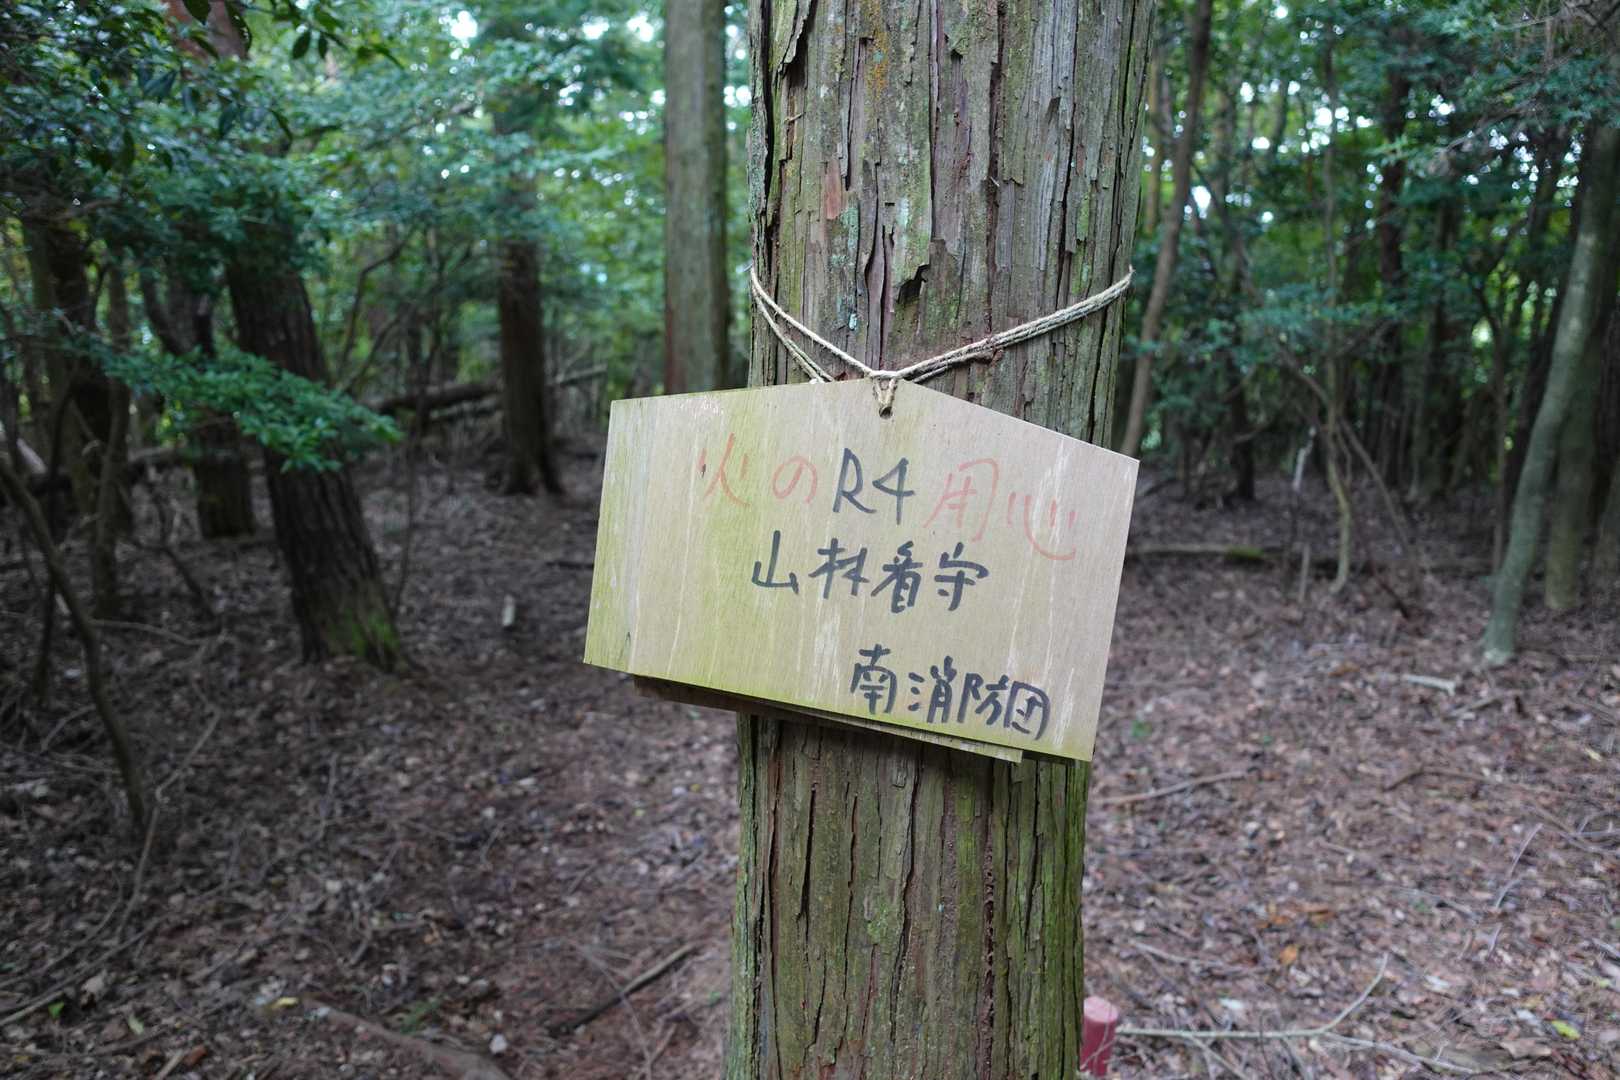 火のR4用心
山林看守
南消防団